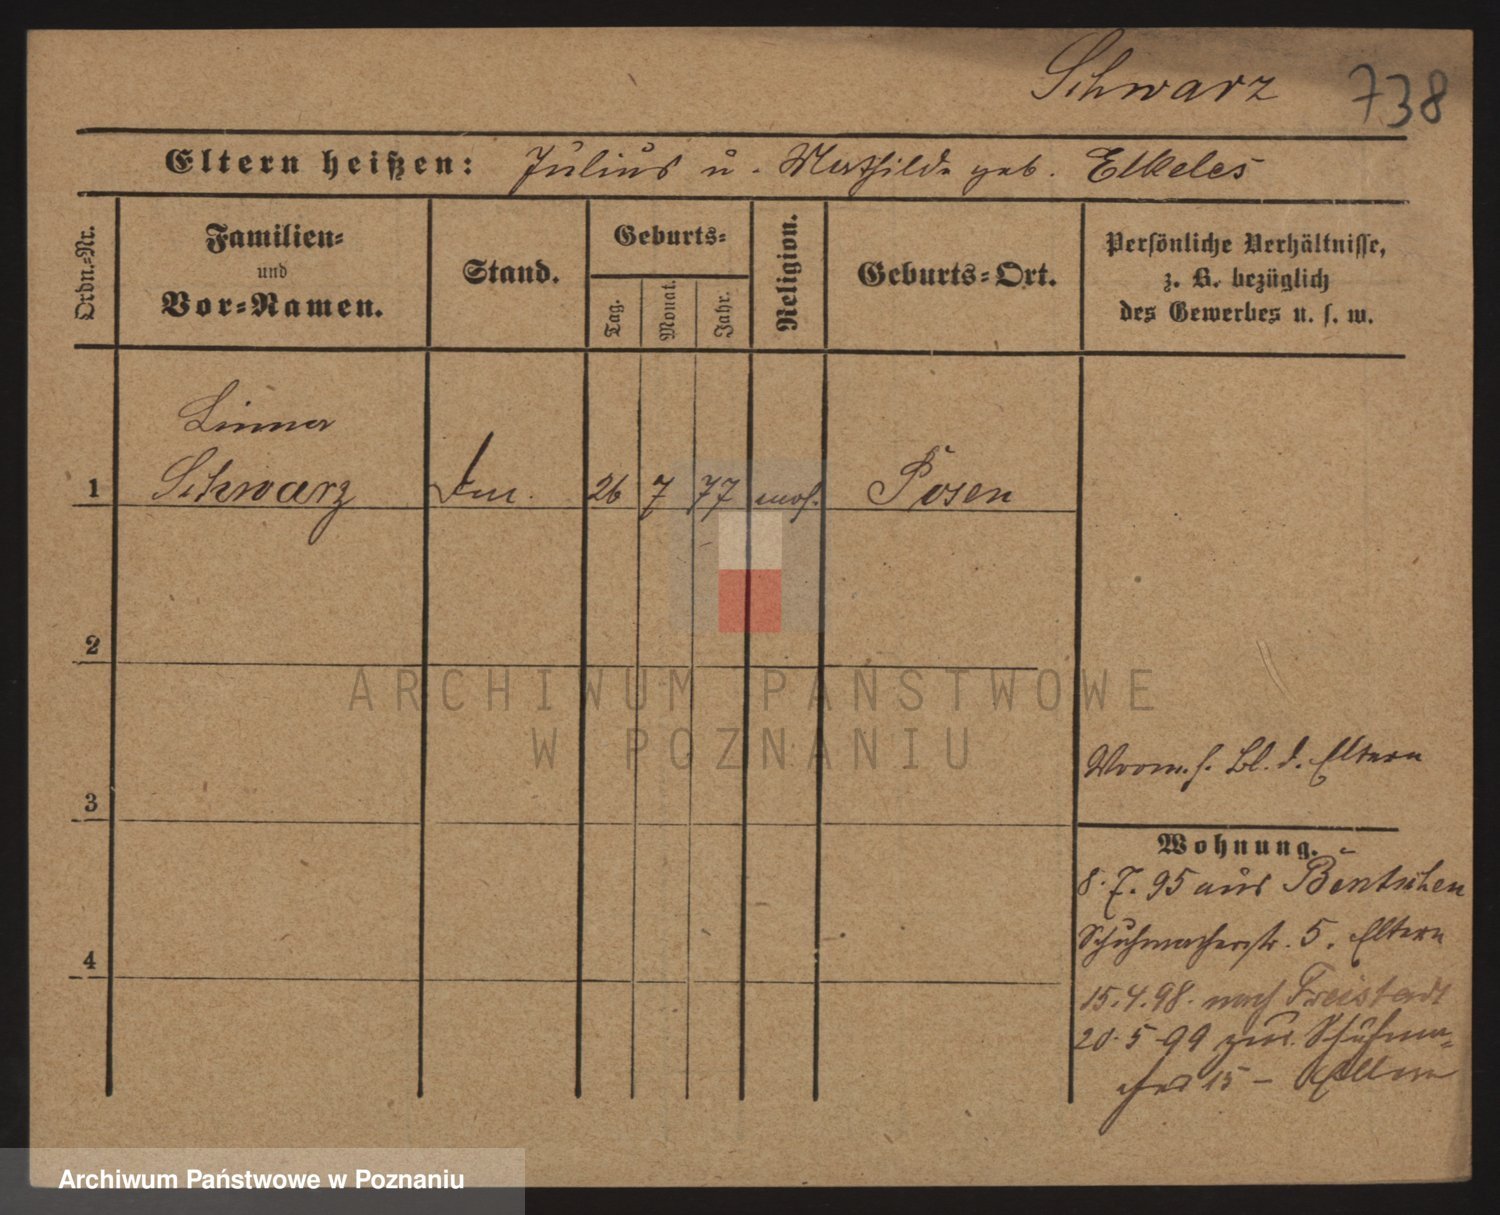 Schwarz 738
Eltern heißen: Julius u. Mathilde geb. Elkeles
Ordn.-Nr.
Familien-
und
Vor-Namen.
Stand.
Geburts-
Tag.
Monat.
Jahr.
Religion.
Geburts-Ort.
Persönliche Verhältnisse,
z. B. bezüglich
des Gewerbes u. s. w.
Linna
1 Schwarz 26 7 77 mos. Posen
2
3
4
ARCHIWUM PAŃSTWOWE
W POZNANIU
Bl. d. Eltern
Wohnung.
8.7.95 aus Bentschen
Schuhmacherstr. 5. Eltern
15.4.98. nach Freistadt
20.5.99 zur. Schuhma-
cher 15 - Eltern
Archiwum Państwowe w Poznaniu